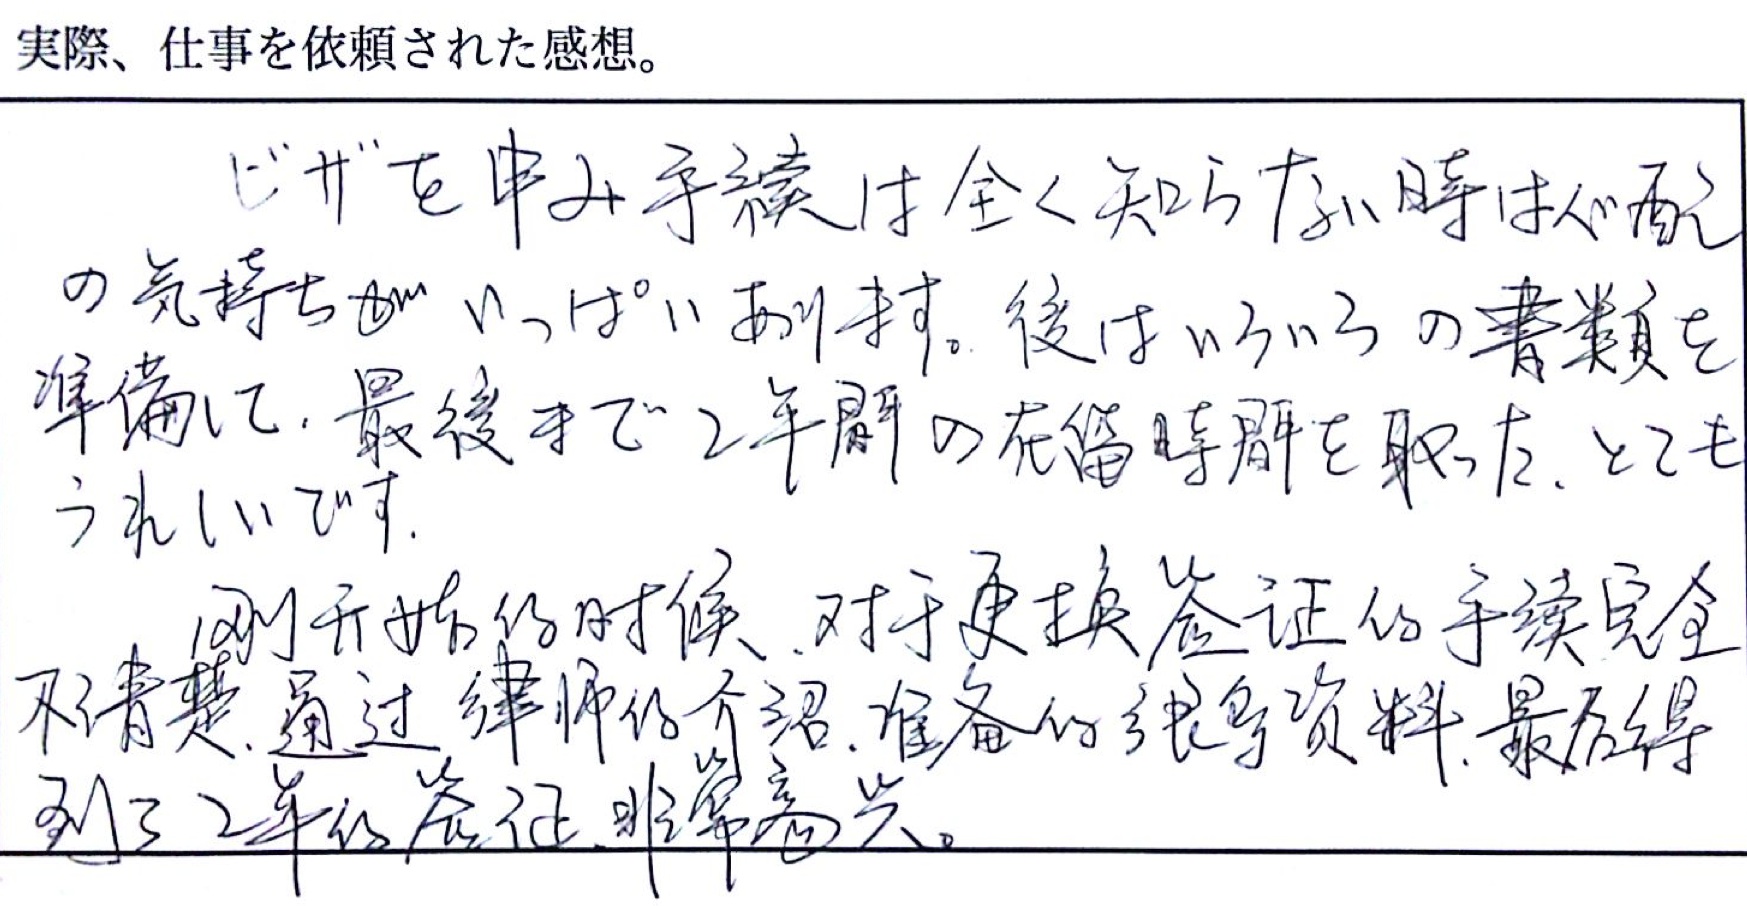 実際、仕事を依頼された感想。
ビザを申み手続は全く知らない時は心配
の気持ちがいっぱいあります。後はいろいろの書類を
準備して、最後まで2年間の在留時間を取った、とても
うれしいです.
刚开始的时候、对于更换签证的手续完全
不清楚、通过律师的介绍、准备的很多资料、最后得
到了2年的签证、非常高兴。